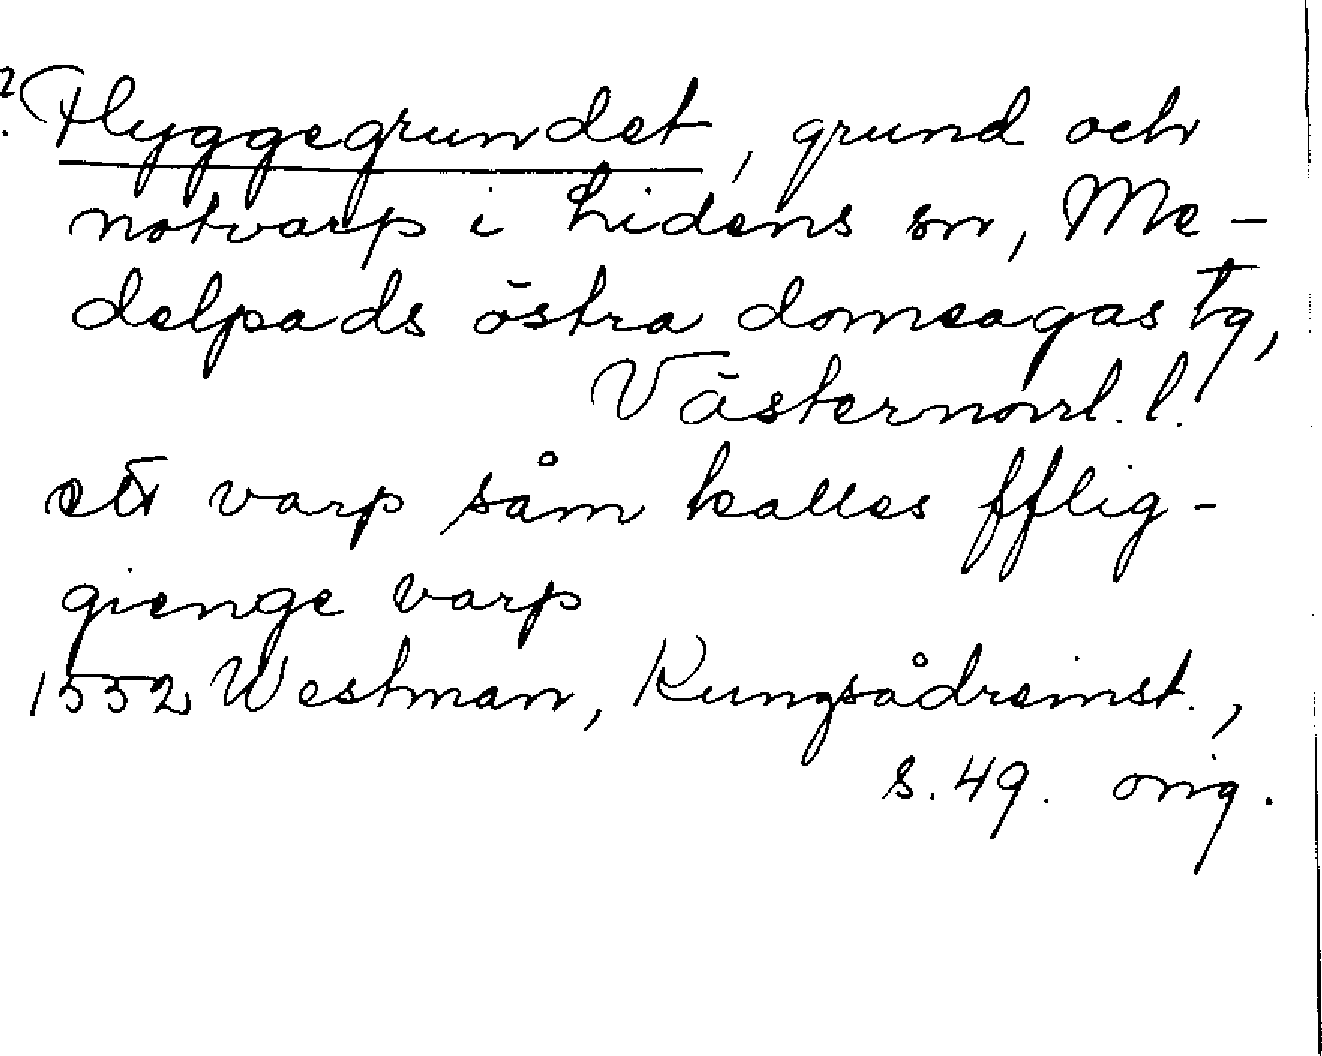 ? Flyggegrundet, grund och
notvarp i Lidens sn, Me-
delpads östra domsagas tg,
Västernorrl. l.
ett varp såm kalles fflig-
gienge varp
1552 Westman, Kungsådreinst.,
s. 49. orig.